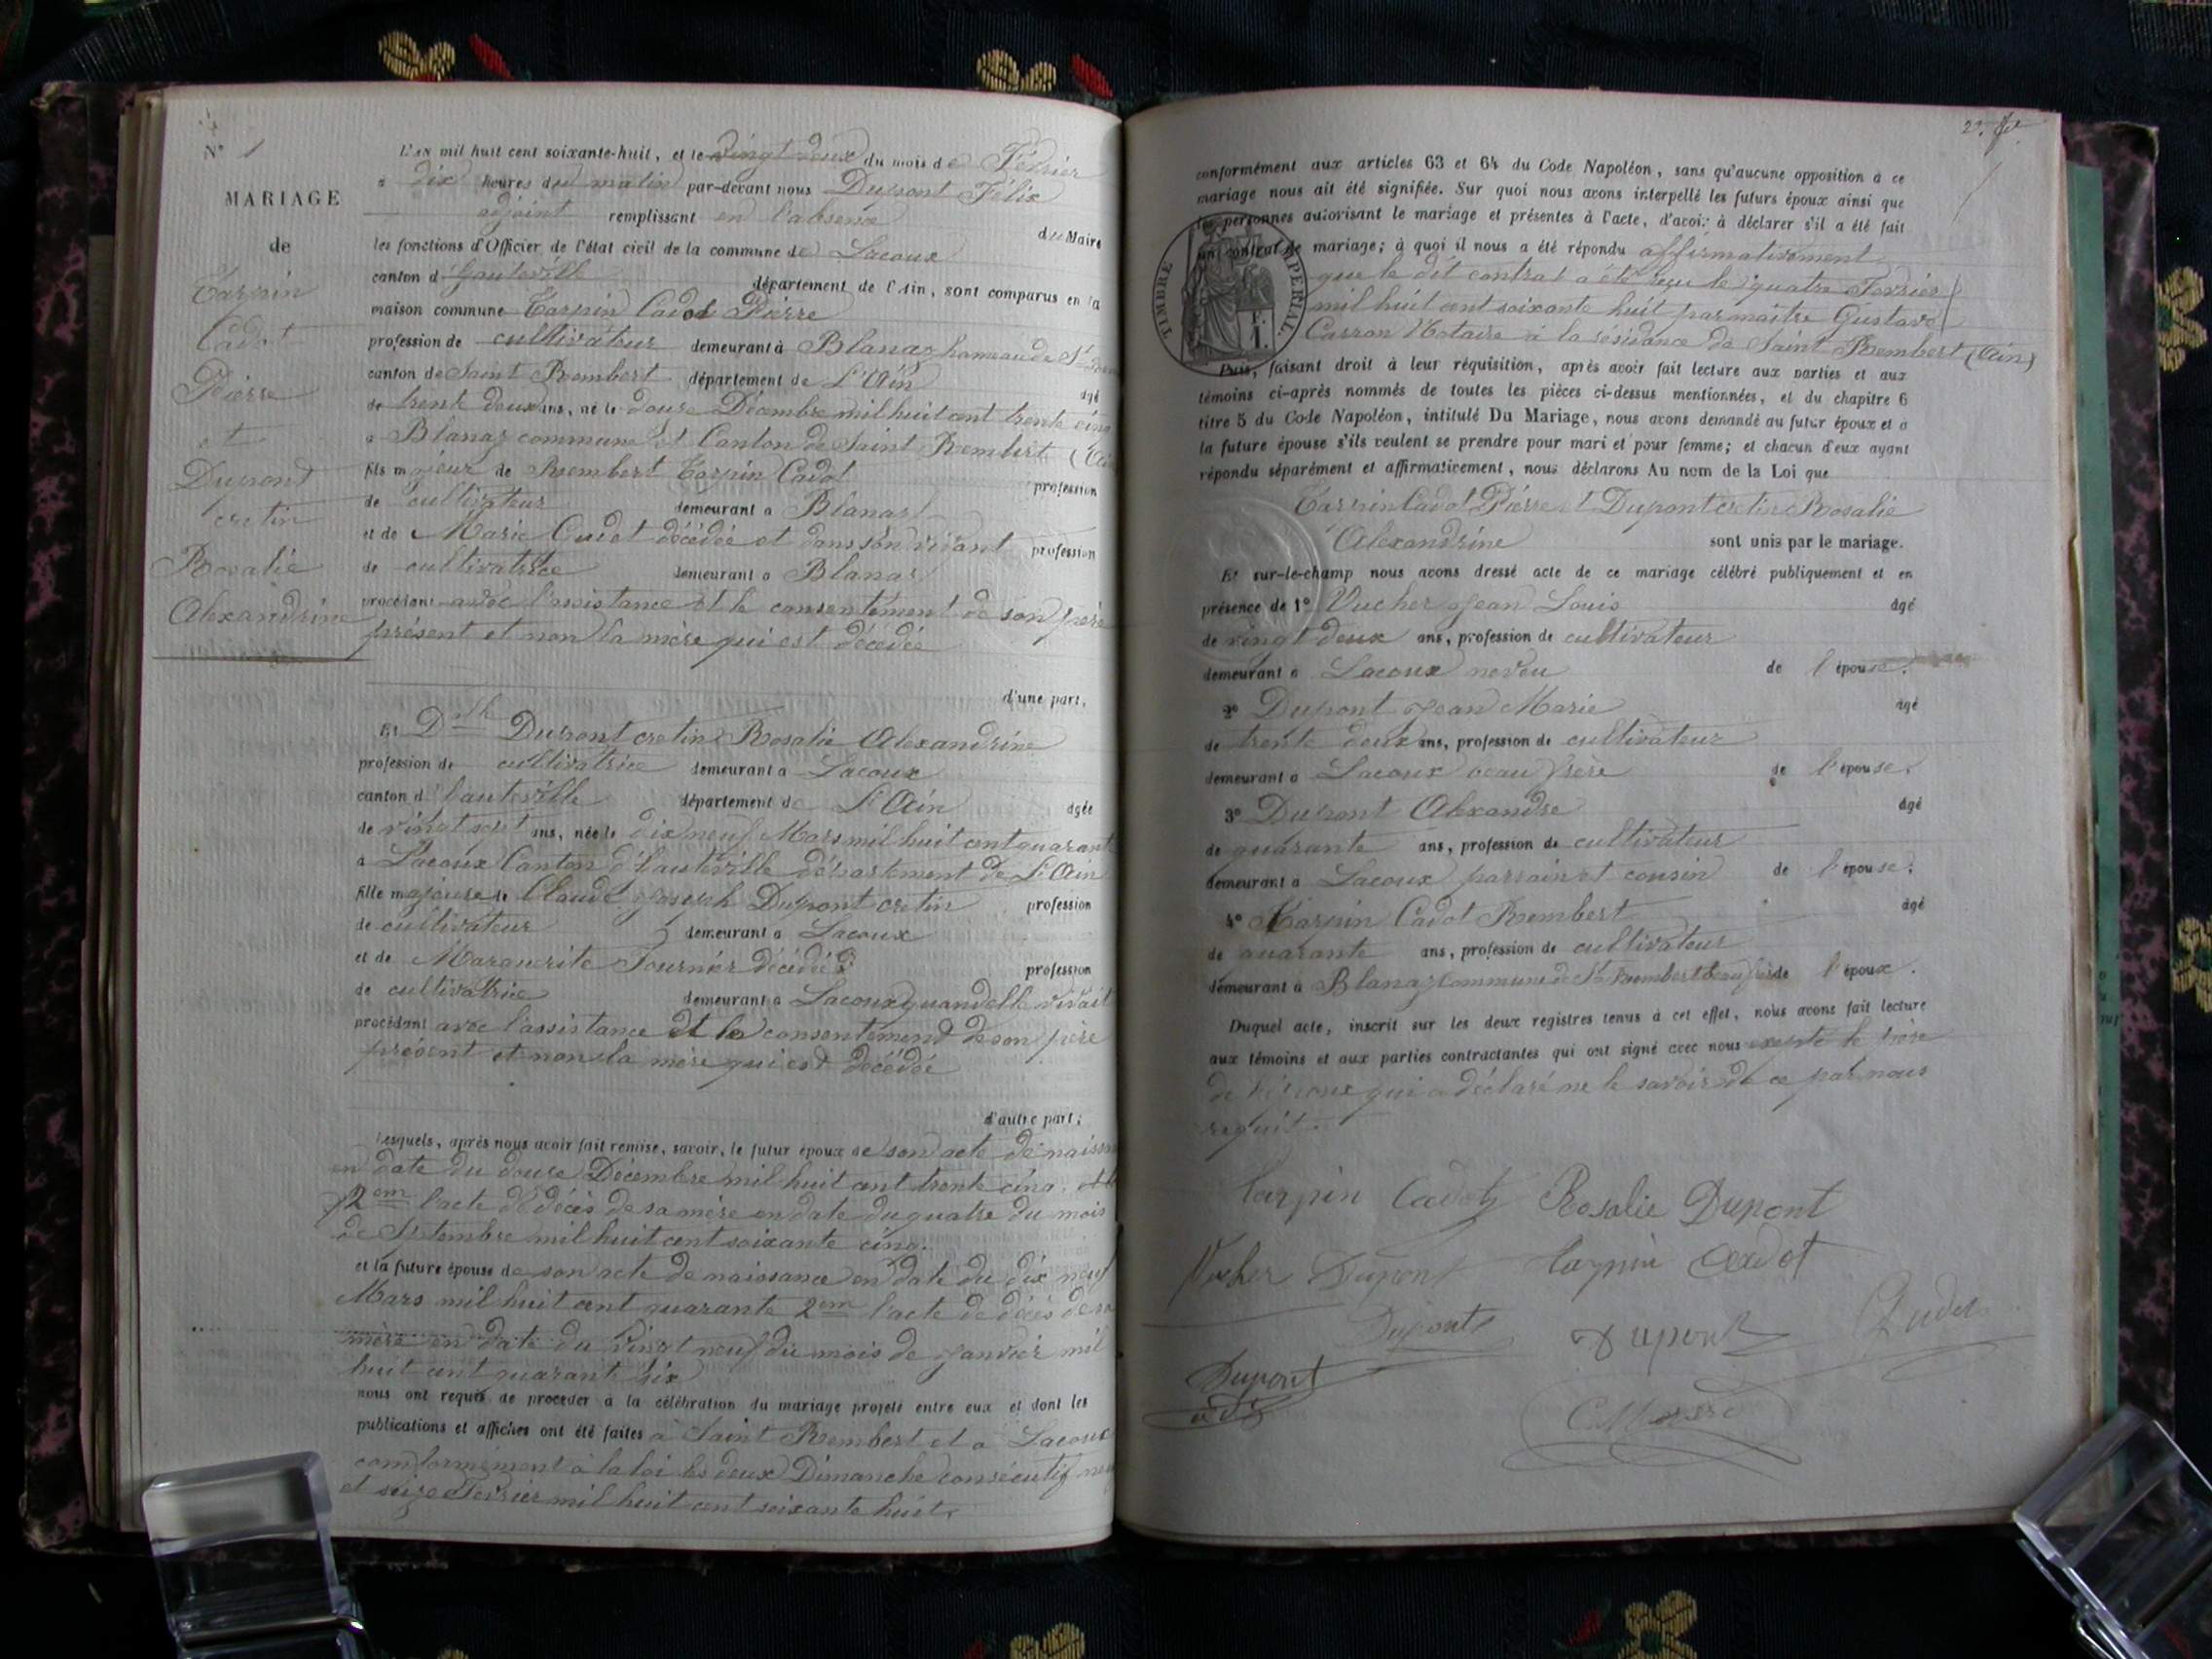 N° 1
MARIAGE
de
Tarpin
Cadot
Pierre
et
Dupont
cretin
Rosalie
Alexandrine
L'AN mil huit cent soixante-huit, et le vingt deux du mois de Février
à dix heures du matin par-devant nous Dupont Félix
adjoint remplissant en l'absence du Maire
les fonctions d'Officier de l'état civil de la commune de Lacoux
canton d'hauteville département de l'Ain, sont comparus en la
maison commune Tarpin Cadot Pierre
profession de cultivateur demeurant à Blanaz hameau de St
canton de Saint Rembert département de L'Ain âgé
de trente deux ans, né le douze Décembre mil huit cent trente cinq
à Blanaz commune et Canton de Saint Rembert (Ain
fils majeur de Rembert Tarpin Cadot profession
de cultivateur demeurant à Blanaz
et de Marie Cudet décédée et dans son vivant profession
de cultivatrice demeurant à Blanaz
procédant avec l'assistance et le consentement de son père
présent et non la mère qui est décédée
d'une part,
Et Dlle Dupont cretin Rosalie Alexandrine
profession de cultivatrice demeurant à Lacoux
canton d'hauteville département de L'Ain âgée
de vingt sept ans, née le dix neuf Mars mil huit cent quarante
à Lacoux Canton d'hauteville département de L'Ain
fille majeure de Claude Joseph Dupont cretin profession
de cultivateur demeurant à Lacoux
et de Marguerite Fournier décédée profession
de cultivatrice demeurant à Lacoux quand elle vivait
procédant avec l'assistance et le consentement de son père
présent et non la mère qui est décédée
d'autre part;
Lesquels, après nous avoir fait remise, savoir, le futur époux de son acte de naissance
en date du douze Décembre mil huit cent trente cinq. et le
2em l'acte de décès de sa mère en date du quatre du mois
de Septembre mil huit cent soixante cinq.
et la future épouse de son acte de naissance en date du dix neuf
Mars mil huit cent quarante 2em l'acte de décès de sa
mère en date du vingt neuf du mois de Janvier mil
huit cent quarante six
nous ont requis de procéder à la célébration du mariage projeté entre eux et dont les
publications et affiches ont été faites à Saint Rembert et à Lacoux
conformément à la loi les deux Dimanche consécutif neuf
et seize Février mil huit cent soixante huit.
conformément aux articles 63 et 64 du Code Napoléon, sans qu'aucune opposition à ce
mariage nous ait été signifiée. Sur quoi nous avons interpellé les futurs époux ainsi que
les personnes autorisant le mariage et présentes à l'acte, d'avoir à déclarer s'il a été fait
un contrat de mariage; à quoi il nous a été répondu affirmativement
que le dit contrat a été reçu le quatre Février
mil huit cent soixante huit par maître Gustave
Carron Notaire à la résidence de Saint Rembert (Ain)
TIMBRE IMPERIAL
Puis, faisant droit à leur réquisition, après avoir fait lecture aux parties et aux
témoins ci-après nommés de toutes les pièces ci-dessus mentionnées, et du chapitre 6
titre 5 du Code Napoléon, intitulé Du Mariage, nous avons demandé au futur époux et à
la future épouse s'ils veulent se prendre pour mari et pour femme; et chacun d'eux ayant
répondu séparément et affirmativement, nous déclarons Au nom de la Loi que
Tarpin Cadot Pierre et Dupont cretin Rosalie
Alexandrine sont unis par le mariage.
Et sur-le-champ nous avons dressé acte de ce mariage célébré publiquement et en
présence de 1° Vucher Jean Louis âgé
de vingt deux ans, profession de cultivateur
demeurant à Lacoux neveu de l'épouse.
2° Dupont Jean Marie âgé
de trente deux ans, profession de cultivateur
demeurant à Lacoux beau frère de l'épouse.
3° Dupont Alexandre âgé
de quarante ans, profession de cultivateur
demeurant à Lacoux parrain et cousin de l'épouse.
4° Tarpin Cadot Rembert âgé
de quarante ans, profession de cultivateur
demeurant à Blanaz commune de St Rembert beau frère de l'époux.
Duquel acte, inscrit sur les deux registres tenus à cet effet, nous avons fait lecture
aux témoins et aux parties contractantes qui ont signé avec nous excepté le père
de l'époux qui a déclaré ne le savoir de ce par nous
requit.
Tarpin Cadot Rosalie Dupont
Vucher Dupont Tarpin Cadot
Dupont Dupont Cudet
Dupont
adjt